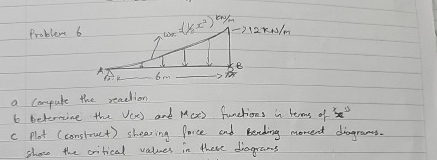 Problem 6
(½ x²) kN/m
12 KN/m
A
B
6m
a Compute the reaction
b Determine the V(x) and M(x) functions in terms of "x"
c Plot (construct) shearing force and Bending moment diagrams.
show the critical values in these diagrams